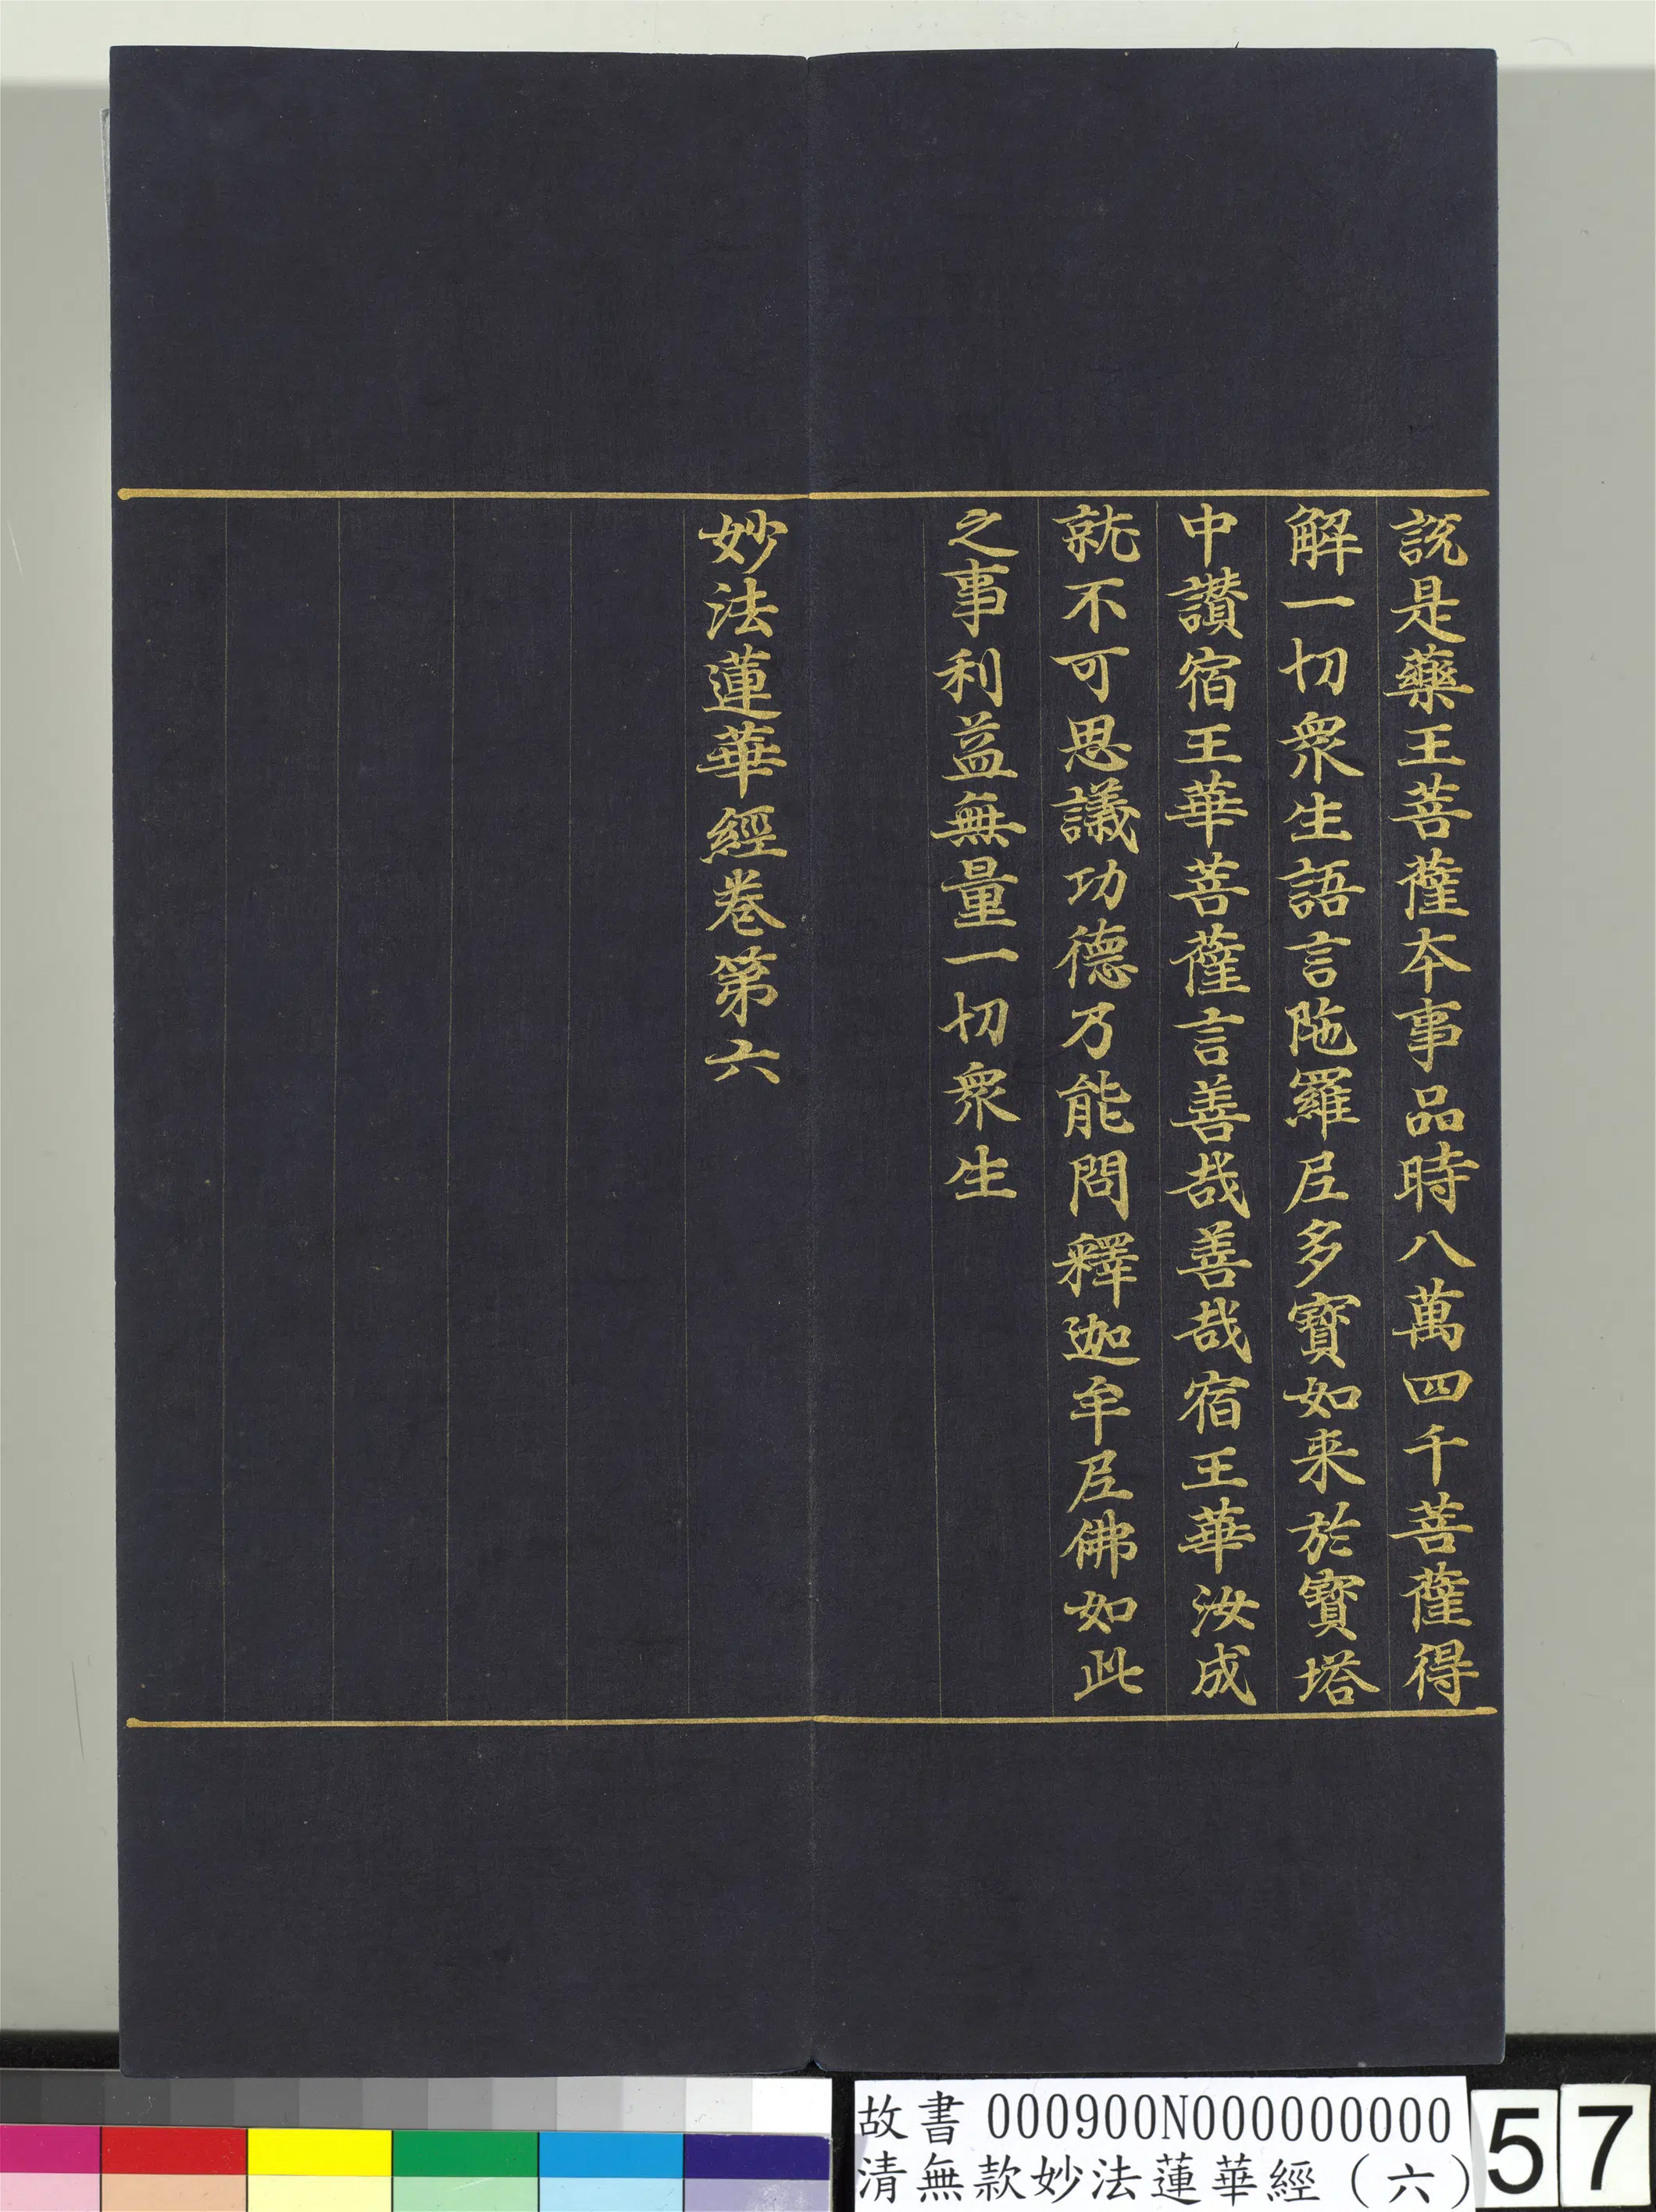 說是藥王菩薩本事品時八萬四千菩薩得
解一切衆生語言陁羅尼多寶如来於寶塔
中讚宿王華菩薩言善哉善哉宿王華汝成
就不可思議功德乃能問釋迦牟尼佛如此
之事利益無量一切衆生
妙法蓮華經卷第六
故書 000900N000000000
清無款妙法蓮華經(六)
57